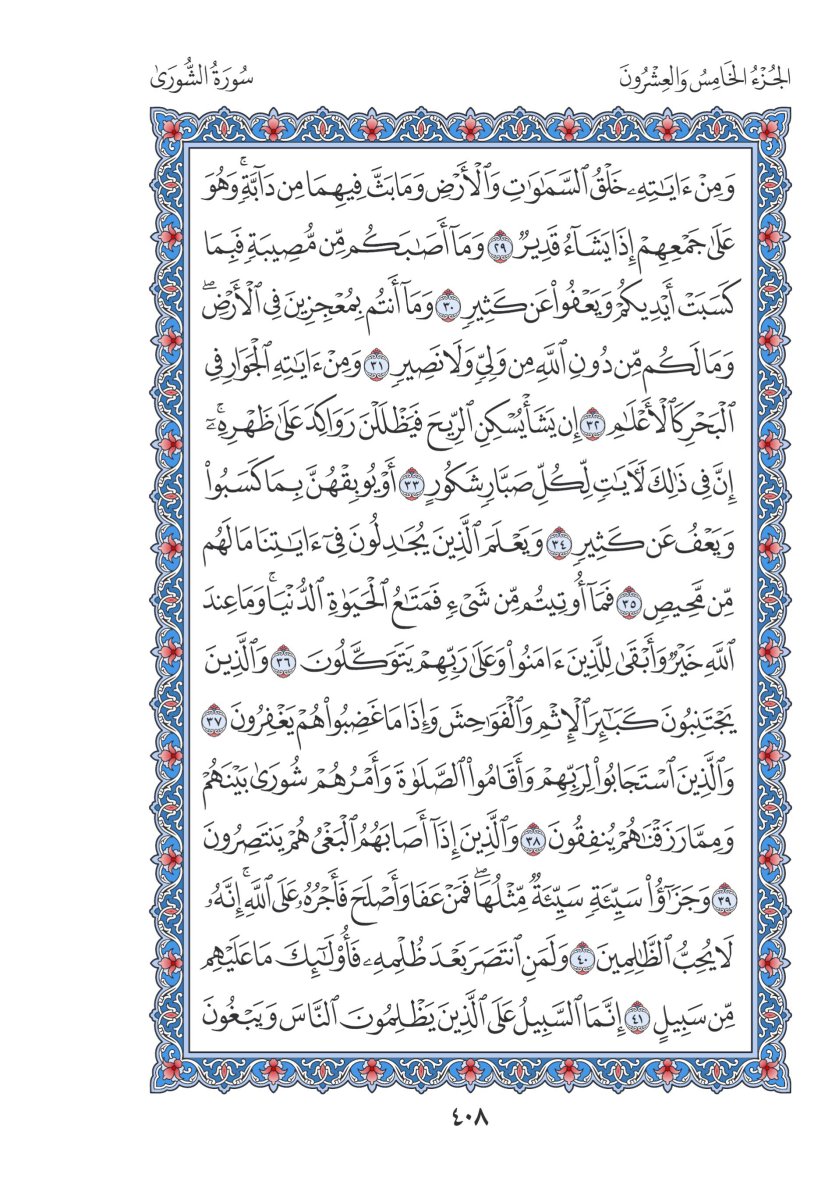 الجُزْءُ الخَامِسُ وَالعِشْرُونَ
سُورَةُ الشُّورَىٰ
وَمِنْ ءَايَٰتِهِۦ خَلْقُ ٱلسَّمَٰوَٰتِ وَٱلْأَرْضِ وَمَا بَثَّ فِيهِمَا مِن دَآبَّةٍۚ وَهُوَ
عَلَىٰ جَمْعِهِمْ إِذَا يَشَآءُ قَدِيرٌ ٢٩ وَمَآ أَصَٰبَكُم مِّن مُّصِيبَةٍ فَبِمَا
كَسَبَتْ أَيْدِيكُمْ وَيَعْفُوا۟ عَن كَثِيرٍ ٣٠ وَمَآ أَنتُم بِمُعْجِزِينَ فِى ٱلْأَرْضِۖ
وَمَا لَكُم مِّن دُونِ ٱللَّهِ مِن وَلِىٍّ وَلَا نَصِيرٍ ٣١ وَمِنْ ءَايَٰتِهِ ٱلْجَوَارِ فِى
ٱلْبَحْرِ كَٱلْأَعْلَٰمِ ٣٢ إِن يَشَأْ يُسْكِنِ ٱلرِّيحَ فَيَظْلَلْنَ رَوَاكِدَ عَلَىٰ ظَهْرِهِۦٓۚ
إِنَّ فِى ذَٰلِكَ لَءَايَٰتٍ لِّكُلِّ صَبَّارٍ شَكُورٍ ٣٣ أَوْ يُوبِقْهُنَّ بِمَا كَسَبُوا۟
وَيَعْفُ عَن كَثِيرٍ ٣٤ وَيَعْلَمَ ٱلَّذِينَ يُجَٰدِلُونَ فِىٓ ءَايَٰتِنَا مَا لَهُم
مِّن مَّحِيصٍ ٣٥ فَمَآ أُوتِيتُم مِّن شَىْءٍ فَمَتَٰعُ ٱلْحَيَوٰةِ ٱلدُّنْيَاۚ وَمَا عِندَ
ٱللَّهِ خَيْرٌ وَأَبْقَىٰ لِلَّذِينَ ءَامَنُوا۟ وَعَلَىٰ رَبِّهِمْ يَتَوَكَّلُونَ ٣٦ وَٱلَّذِينَ
يَجْتَنِبُونَ كَبَٰٓئِرَ ٱلْإِثْمِ وَٱلْفَوَٰحِشَ وَإِذَا مَا غَضِبُوا۟ هُمْ يَغْفِرُونَ ٣٧
وَٱلَّذِينَ ٱسْتَجَابُوا۟ لِرَبِّهِمْ وَأَقَامُوا۟ ٱلصَّلَوٰةَ وَأَمْرُهُمْ شُورَىٰ بَيْنَهُمْ
وَمِمَّا رَزَقْنَٰهُمْ يُنفِقُونَ ٣٨ وَٱلَّذِينَ إِذَآ أَصَابَهُمُ ٱلْبَغْىُ هُمْ يَنتَصِرُونَ
٣٩ وَجَزَٰٓؤُا۟ سَيِّئَةٍ سَيِّئَةٌ مِّثْلُهَاۖ فَمَنْ عَفَا وَأَصْلَحَ فَأَجْرُهُۥ عَلَى ٱللَّهِۚ إِنَّهُۥ
لَا يُحِبُّ ٱلظَّٰلِمِينَ ٤٠ وَلَمَنِ ٱنتَصَرَ بَعْدَ ظُلْمِهِۦ فَأُو۟لَٰٓئِكَ مَا عَلَيْهِم
مِّن سَبِيلٍ ٤١ إِنَّمَا ٱلسَّبِيلُ عَلَى ٱلَّذِينَ يَظْلِمُونَ ٱلنَّاسَ وَيَبْغُونَ
٤٠٨